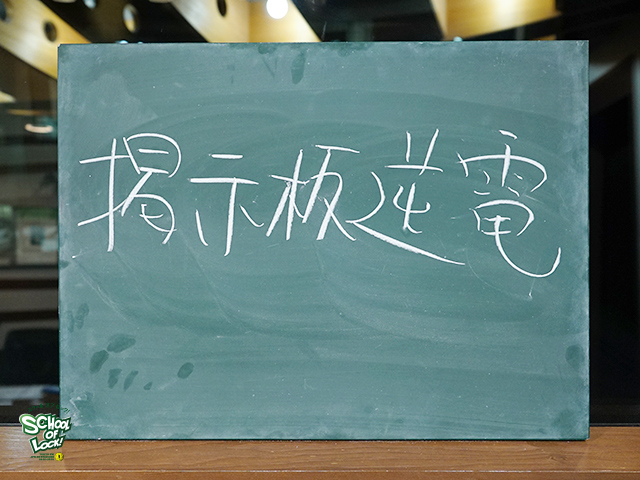 掲示板逆電
SCHOOL
OF
LOCK!